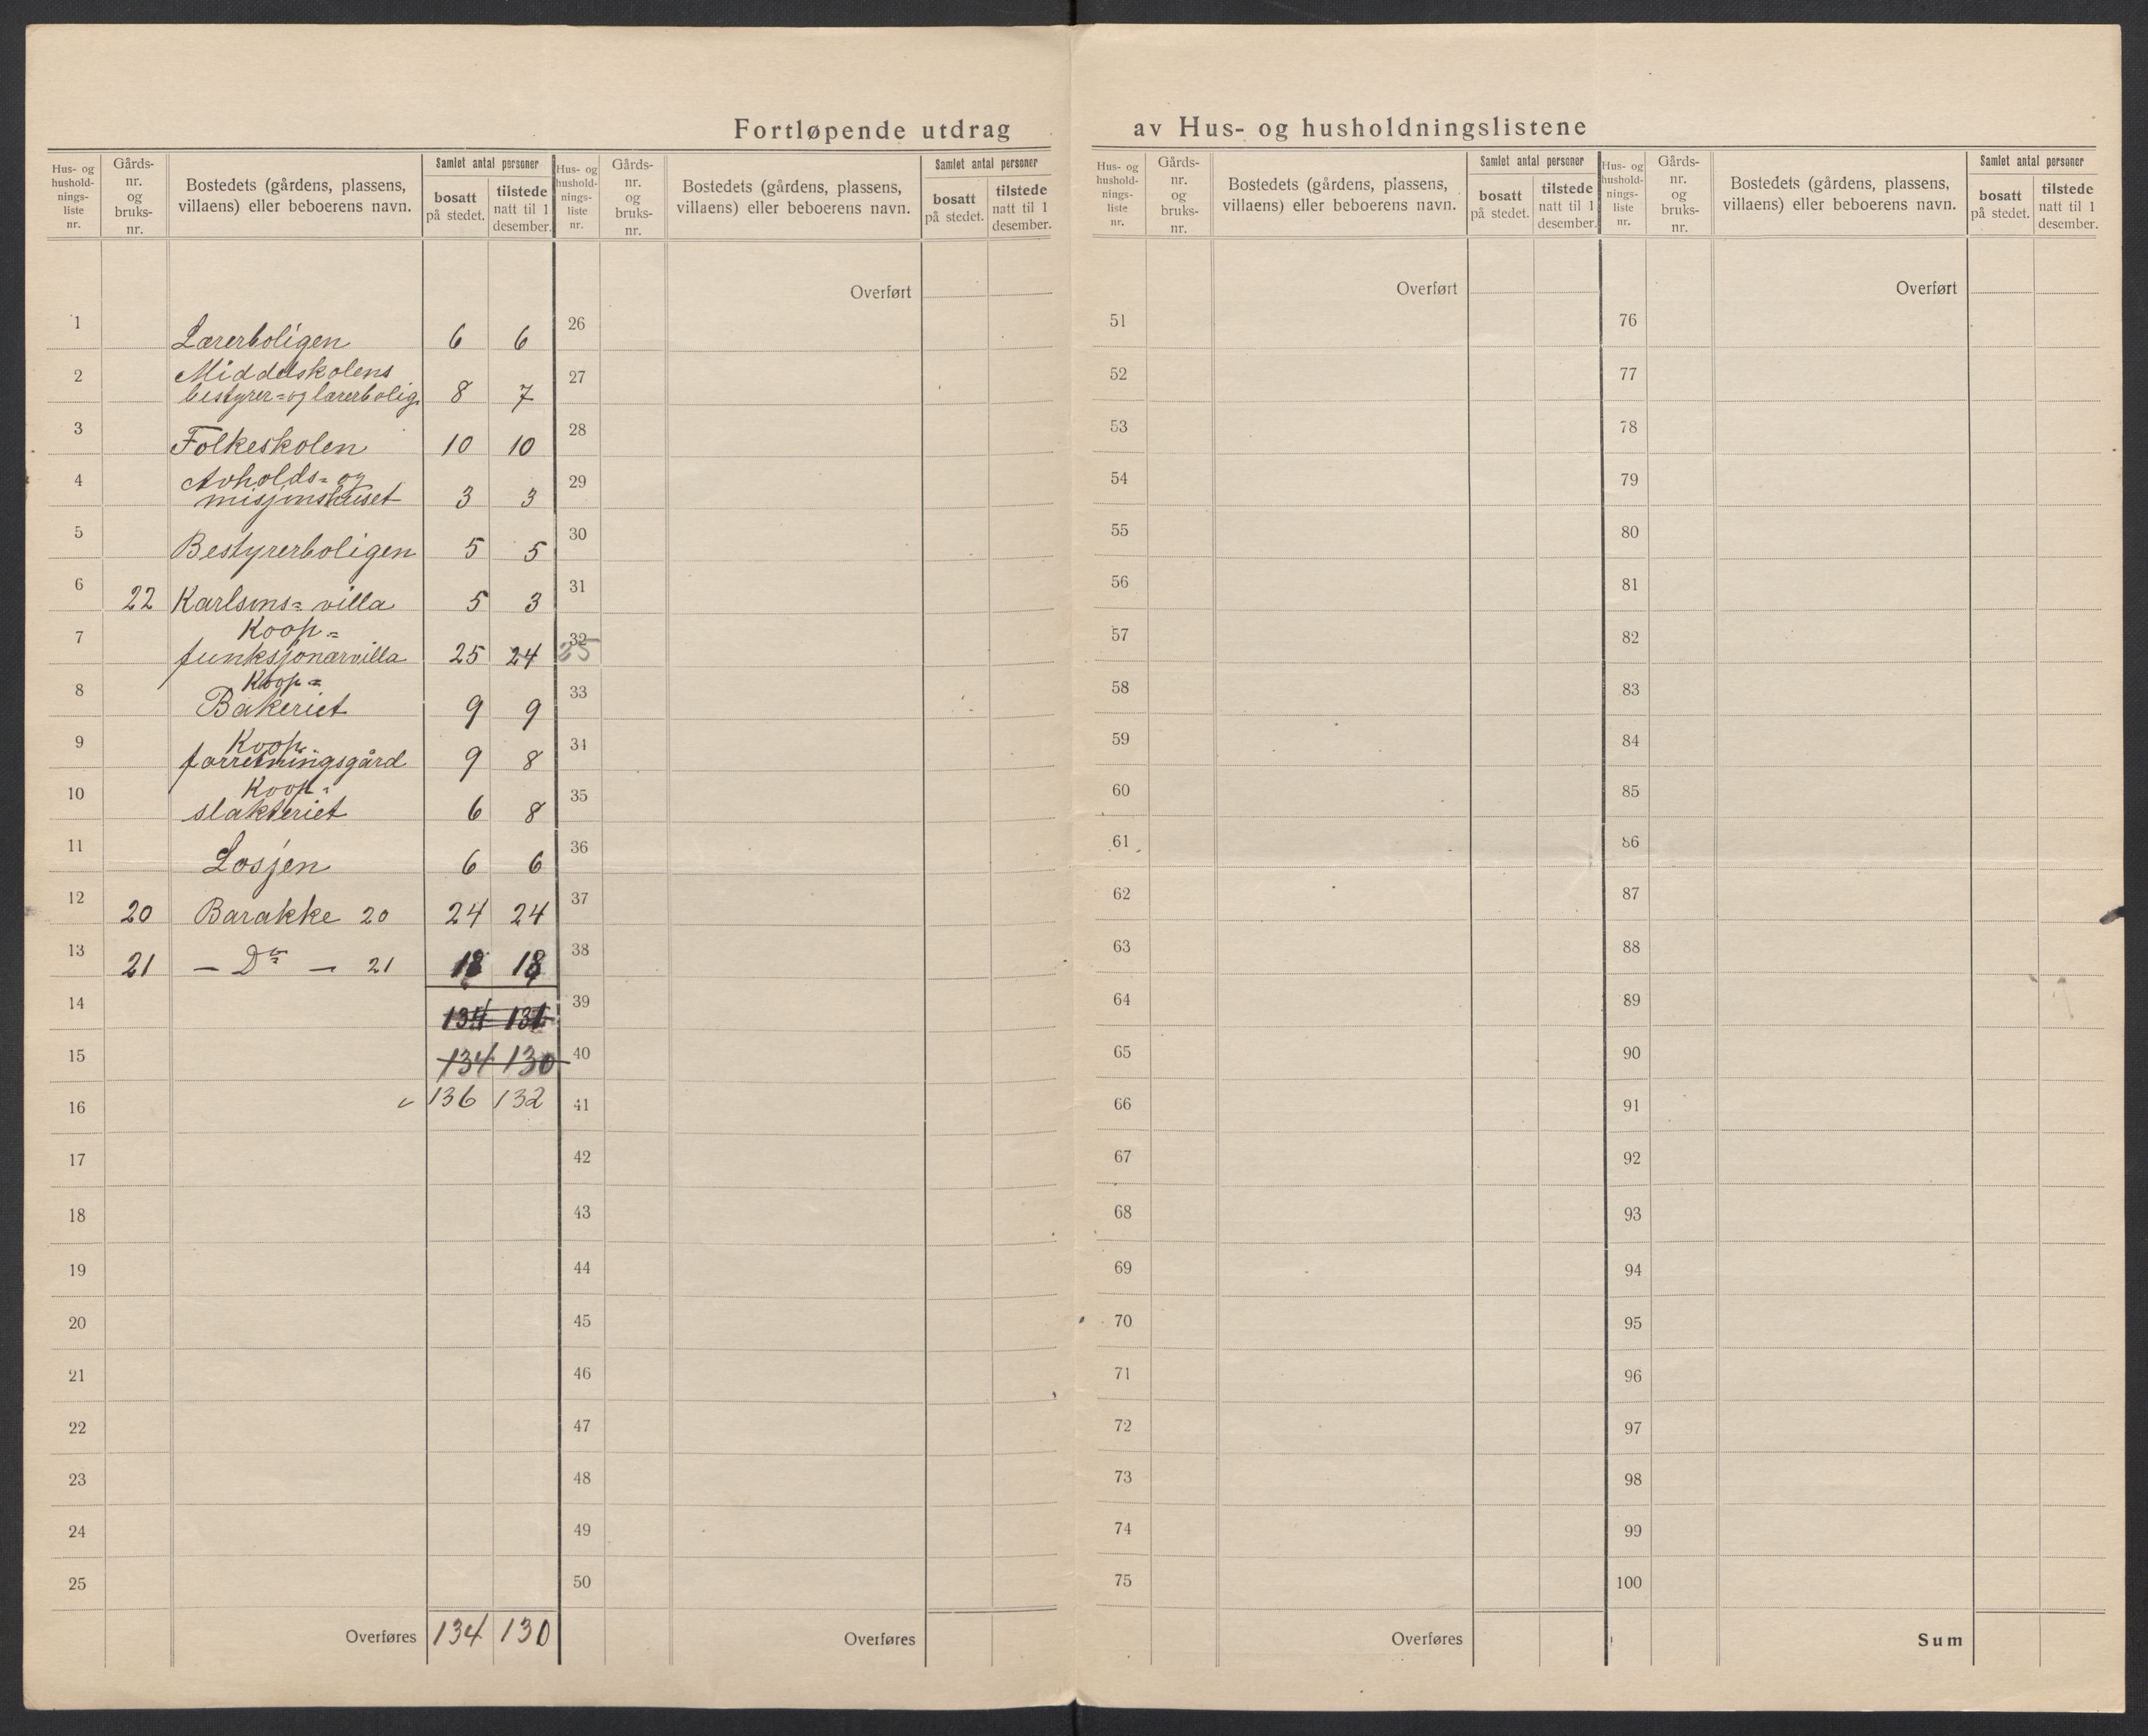 Fortløpende utdrag av Hus- og husholdningslistene
Hus- og hushold-nings-liste nr. Gårds-nr. og bruks-nr. Bostedets (gårdens, plassens, villaens) eller beboerens navn. Samlet antal personer bosatt på stedet. tilstede natt til 1 desember.
1 Lærerboligen 6 6
2 Middelskolens
bestyrer= og lærerbolig 8 7
3 Folkeskolen 10 10
4 Avholds= og
misjonshuset 3 3
5 Bestyrerboligen 5 5
6 22 Karlsens= villa 5 3
7 Koop=
funksjonærvilla 25 24
8 Koop=
Bakeriet 9 9
9 Koop.
forretningsgård 9 8
10 Koop.
slakteriet 6 8
11 Losjen 6 6
12 20 Barakke 20 24 24
13 21 — Do — 21 18 18
14 134 131
15 134 130
16 136 132
17
18
19
20
21
22
23
24
25
Overføres 134 130
Hus- og hushold-nings-liste nr. Gårds-nr. og bruks-nr. Bostedets (gårdens, plassens, villaens) eller beboerens navn. Samlet antal personer bosatt på stedet. tilstede natt til 1 desember.
Overført
26
27
28
29
30
31
32 25
33
34
35
36
37
38
39
40
41
42
43
44
45
46
47
48
49
50
Overføres
Hus- og hushold-nings-liste nr. Gårds-nr. og bruks-nr. Bostedets (gårdens, plassens, villaens) eller beboerens navn. Samlet antal personer bosatt på stedet. tilstede natt til 1 desember.
Overført
51
52
53
54
55
56
57
58
59
60
61
62
63
64
65
66
67
68
69
70
71
72
73
74
75
Overføres
Hus- og hushold-nings-liste nr. Gårds-nr. og bruks-nr. Bostedets (gårdens, plassens, villaens) eller beboerens navn. Samlet antal personer bosatt på stedet. tilstede natt til 1 desember.
Overført
76
77
78
79
80
81
82
83
84
85
86
87
88
89
90
91
92
93
94
95
96
97
98
99
100
Sum